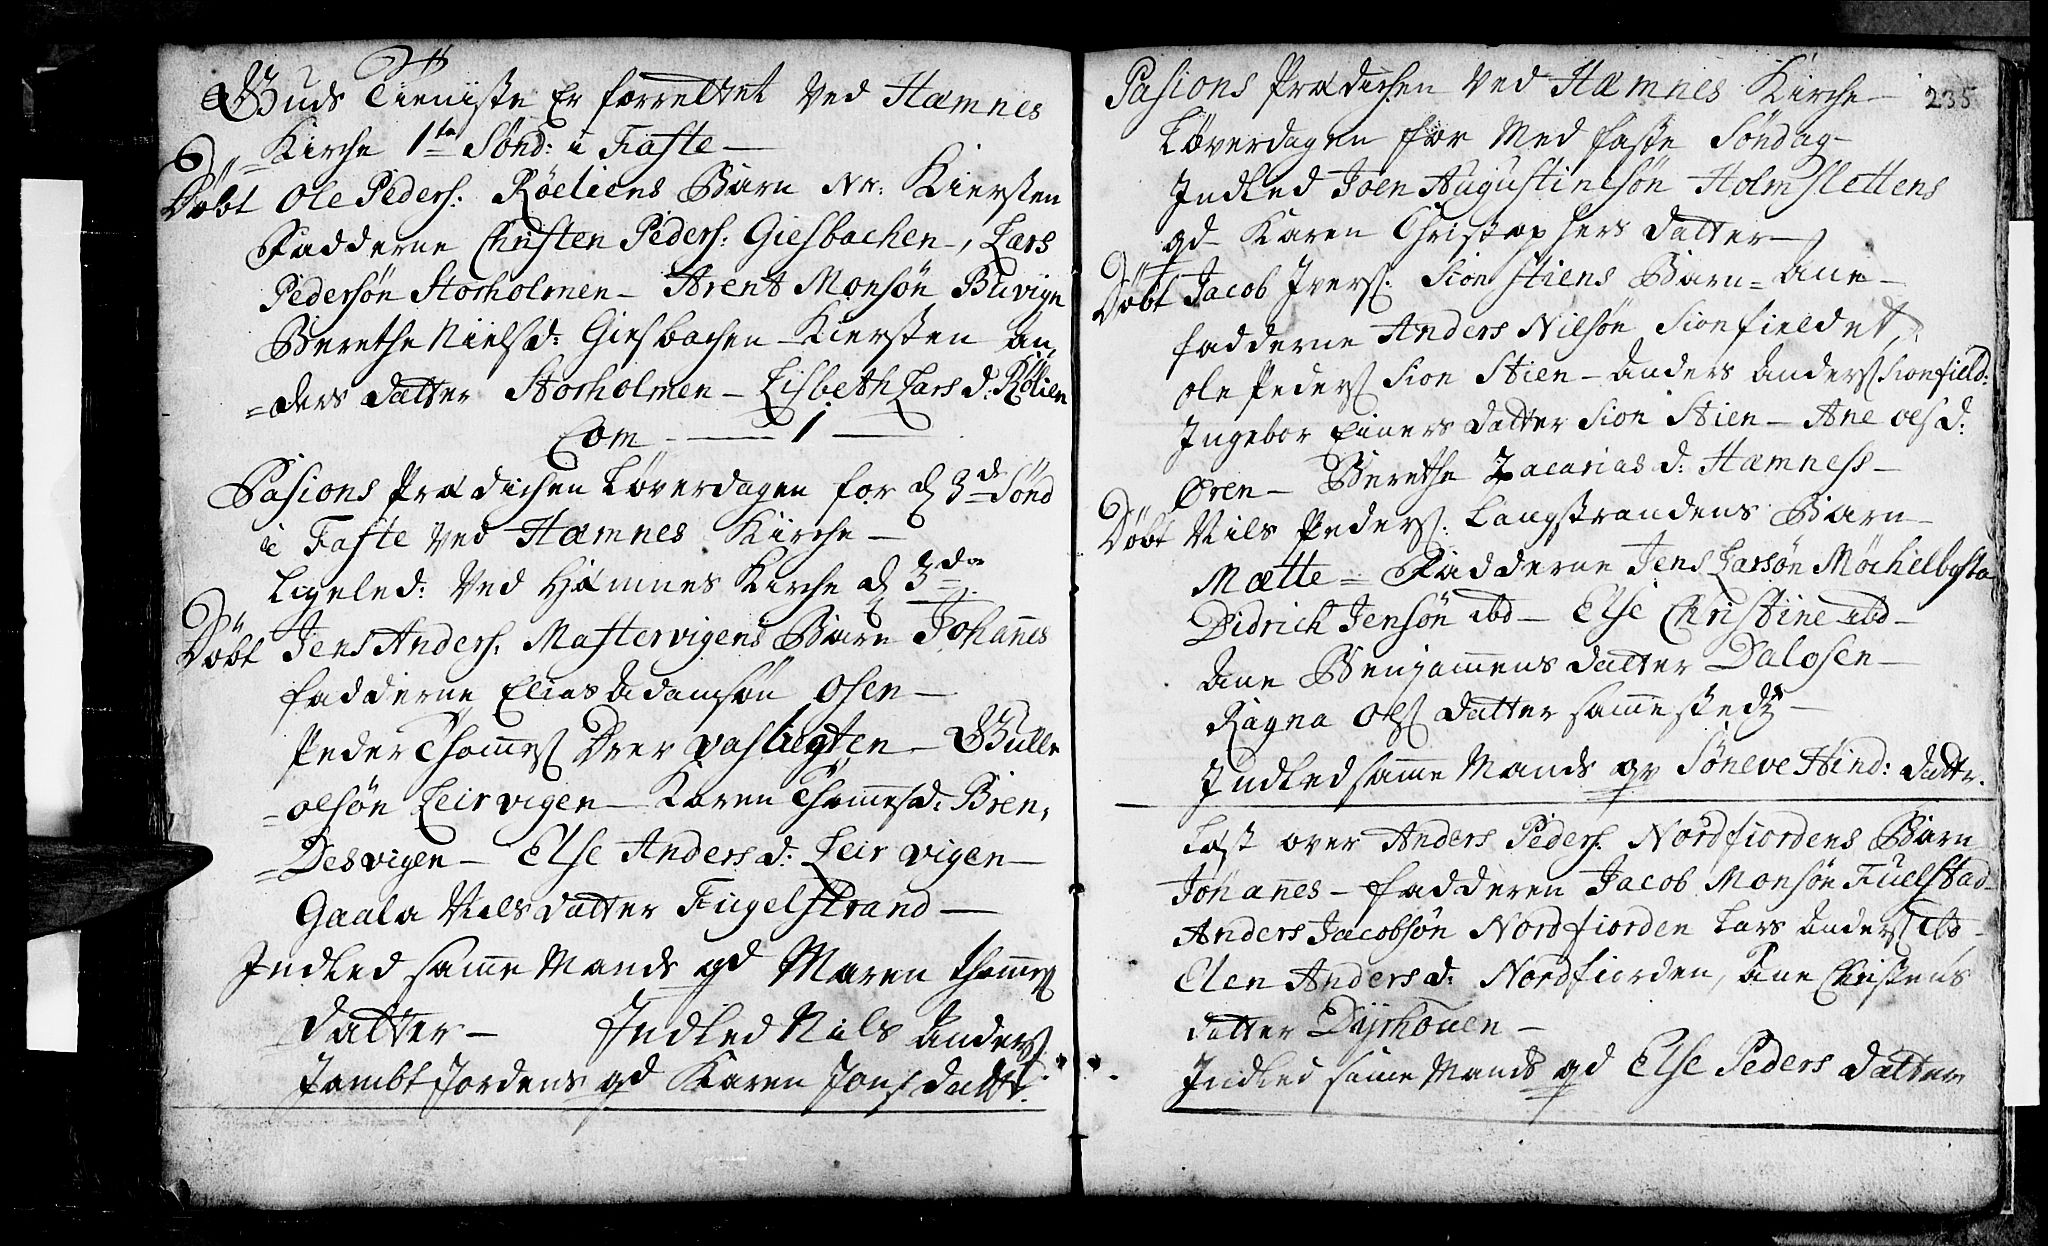 Guds Tieniste Er forrettet Ved Hæmnes
Kirche 1te Sønd: i Faste —
Døbt Ole Peders: Røeliens Barn Nr: Kiersten
Fadderne Christen Peders: Giesbachen, Lars
Pedersøn Storholmen — Arent Monsøn Buvign
Berethe Nielsd: Giesbachen Kiersten an,
=ders datter Storholmen — Lisbeth Lars d: Rølien
Com — 1 —
Pasions Prædichen Løverdagen for d 3de Sønd
i Faste Ved Hæmnes Kirche —
Ligeled: Ved Hæmnes Kirche d 3de
Døbt Jens Anders: Mastervigens Barn Johannes
fadderne Elias Adamsøn Osen —
Peder Thomes Over Vasligten — Gulle
=olsøn Leirvigen — Karen Thomesd: Bren,
=Desvigen — Else Anders d: Leirvigen —
Gaala Nilsdatter Fugelstrand —
Indled samme Mands qd Maren Thomes
datter — Indled Nils Anders
Jambtjordens qd Karen Jons datt:
Pasions Prædichen Ved Hæmnes Kirche — 235
Løverdagen for Med faste Søndag —
Indled Joen Augustinesøn Holmslettens
qd Karen Christophers datter —
Døbt Jacob Ivers: Sionstiens Barn = Ane —
fadderne Anders Nilsøn Sionfieldet,
ole Peders Sion Stien — Anders Anders Sionfield:
Ingebor Einers datter Sion Stien — Ane ols d:
Øren — Berethe Zacarias d: Hæmness —
Døbt Nils Peders: Langstrandens Barn
Mætte = Fadderne Jens Larsøn Møchelbosta
Didrich Jensøn ibd — Else Christine ibd —
Ane Benjamens datter Dalosen —
Ragna Ols datter samme stedz —
Indled samme Mands qv Søneve Hind: datr.
Læst over Anders Peders: Nordfiordens Barn
Johannes — Fadderen Jacob Monsøn Fuelstad
Anders Jacobsøn Nordfiorden Lars Anders ibd
Elen Anders d: Nordfiorden, Ane Christens
datter Dijrhouen —
Indled samme Mands qd Else Peders datter